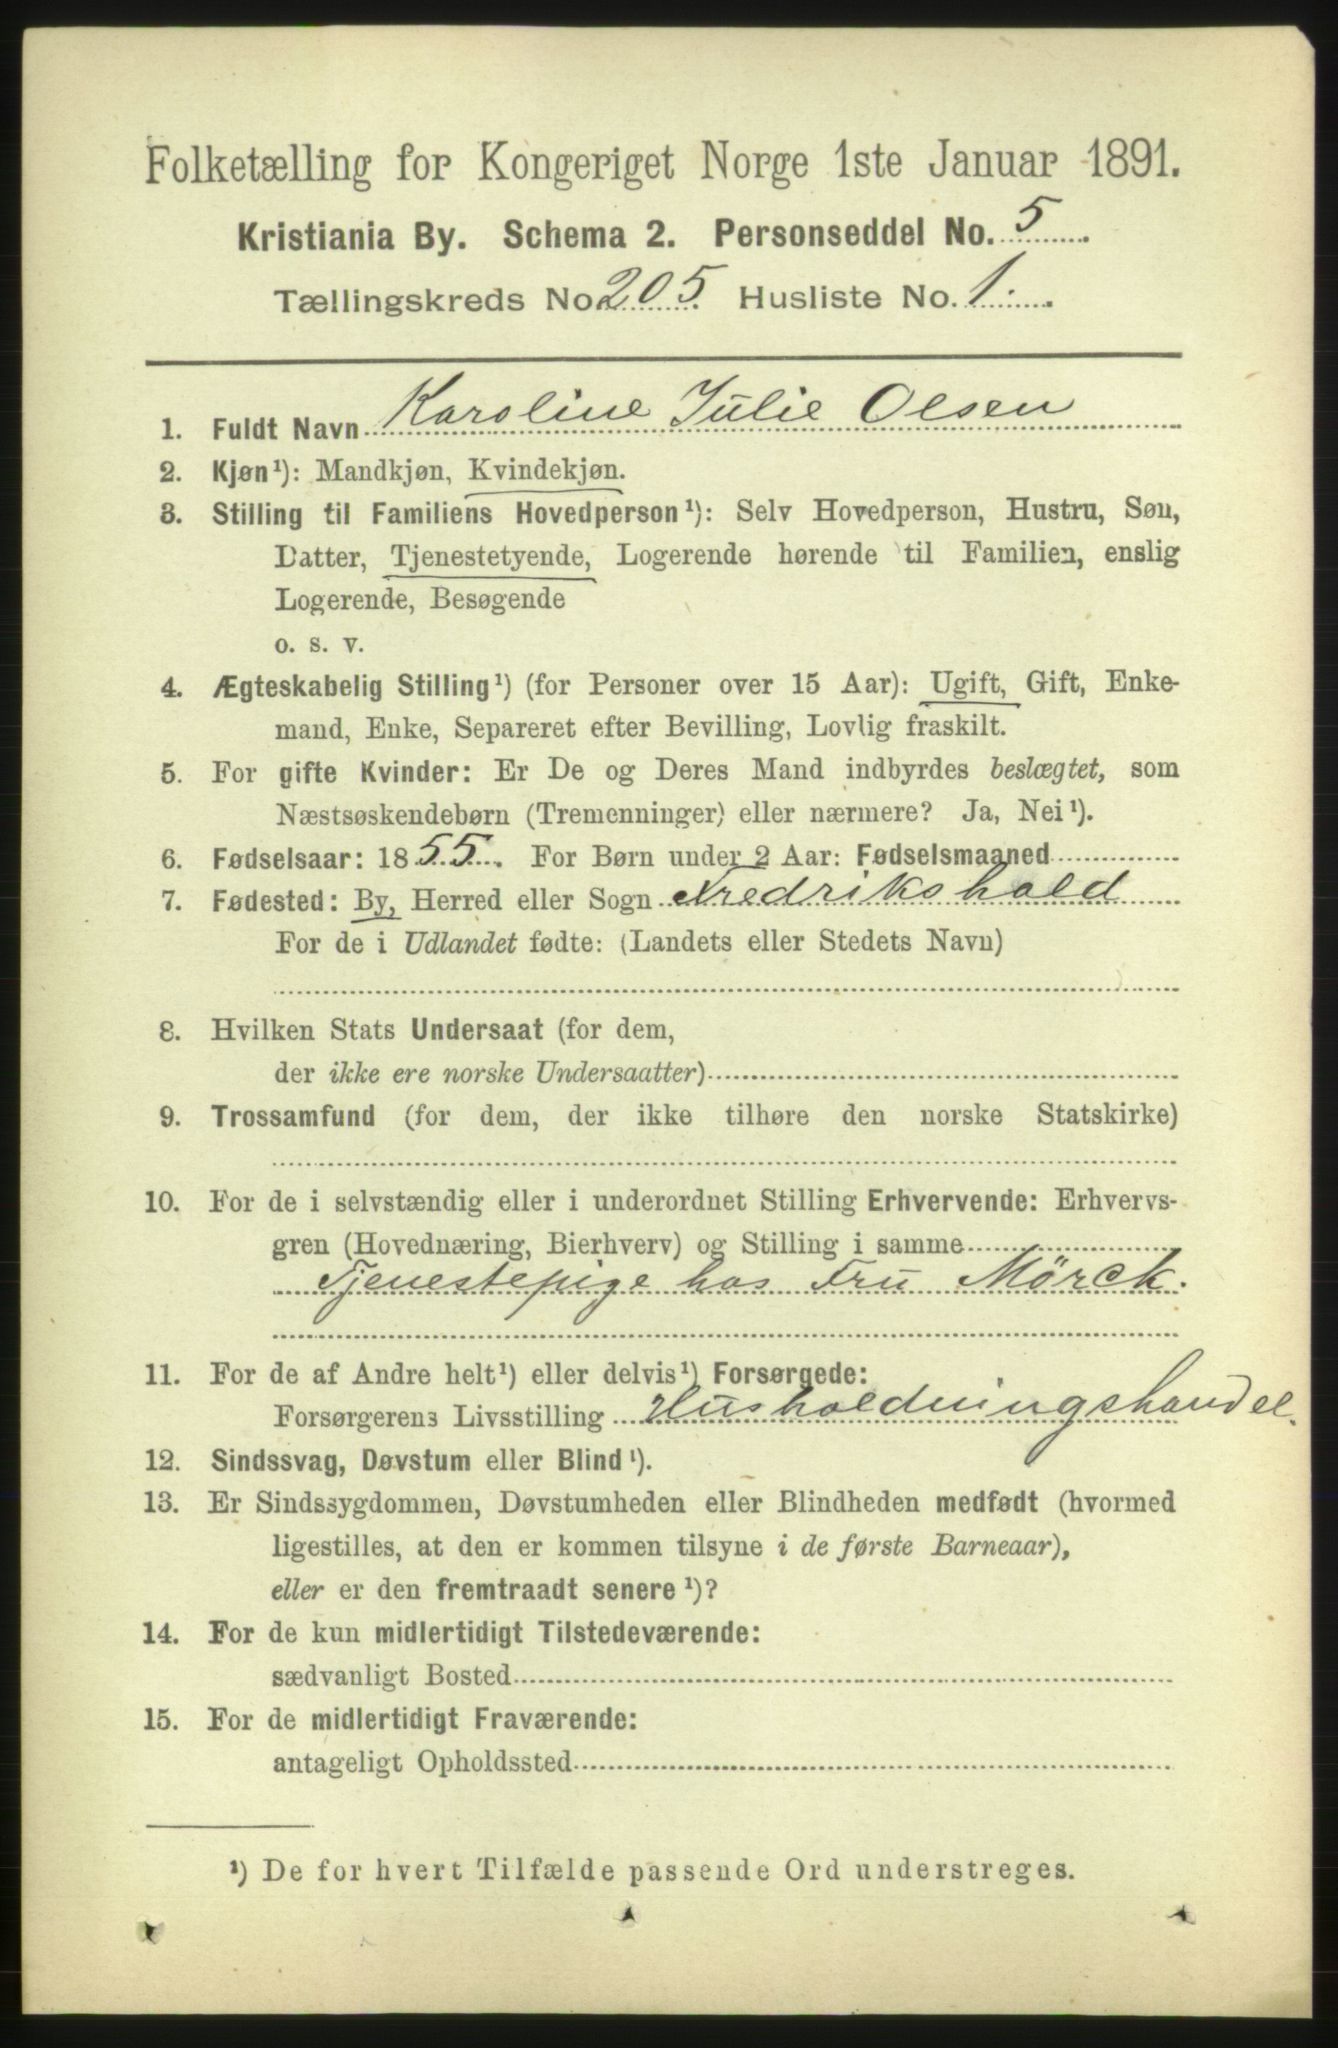 Folketælling for Kongeriget Norge 1ste Januar 1891.
Kristiania By. Schema 2. Personseddel No. 5
Tællingskreds No. 205 Husliste No. 1.
1. Fuldt Navn Karoline Julie Olsen
2. Kjøn¹): Mandkjøn, Kvindekjøn.
3. Stilling til Familiens Hovedperson¹): Selv Hovedperson, Hustru, Søn,
Datter, Tjenestetyende, Logerende hørende til Familien, enslig
Logerende, Besøgende
o. s. v.
4. Ægteskabelig Stilling¹) (for Personer over 15 Aar): Ugift, Gift, Enke-
mand, Enke, Separeret efter Bevilling, Lovlig fraskilt.
5. For gifte Kvinder: Er De og Deres Mand indbyrdes beslægtet, som
Næstsøskendebørn (Tremenninger) eller nærmere? Ja, Nei¹).
6. Fødselsaar: 1855. For Børn under 2 Aar: Fødselsmaaned
7. Fødested: By, Herred eller Sogn Fredrikshald
For de i Udlandet fødte: (Landets eller Stedets Navn)
8. Hvilken Stats Undersaat (for dem,
der ikke ere norske Undersaatter)
9. Trossamfund (for dem, der ikke tilhøre den norske Statskirke)
10. For de i selvstændig eller i underordnet Stilling Erhvervende: Erhvervs-
gren (Hovednæring, Bierhverv) og Stilling i samme
Tjenestepige hos Fru Mörck.
11. For de af Andre helt¹) eller delvis¹) Forsørgede:
Forsørgerens Livsstilling Husholdningshandel.
12. Sindssvag, Døvstum eller Blind¹).
13. Er Sindssygdommen, Døvstumheden eller Blindheden medfødt (hvormed
ligestilles, at den er kommen tilsyne i de første Barneaar),
eller er den fremtraadt senere¹)?
14. For de kun midlertidigt Tilstedeværende:
sædvanligt Bosted
15. For de midlertidigt Fraværende:
antageligt Opholdssted
¹) De for hvert Tilfælde passende Ord understreges.